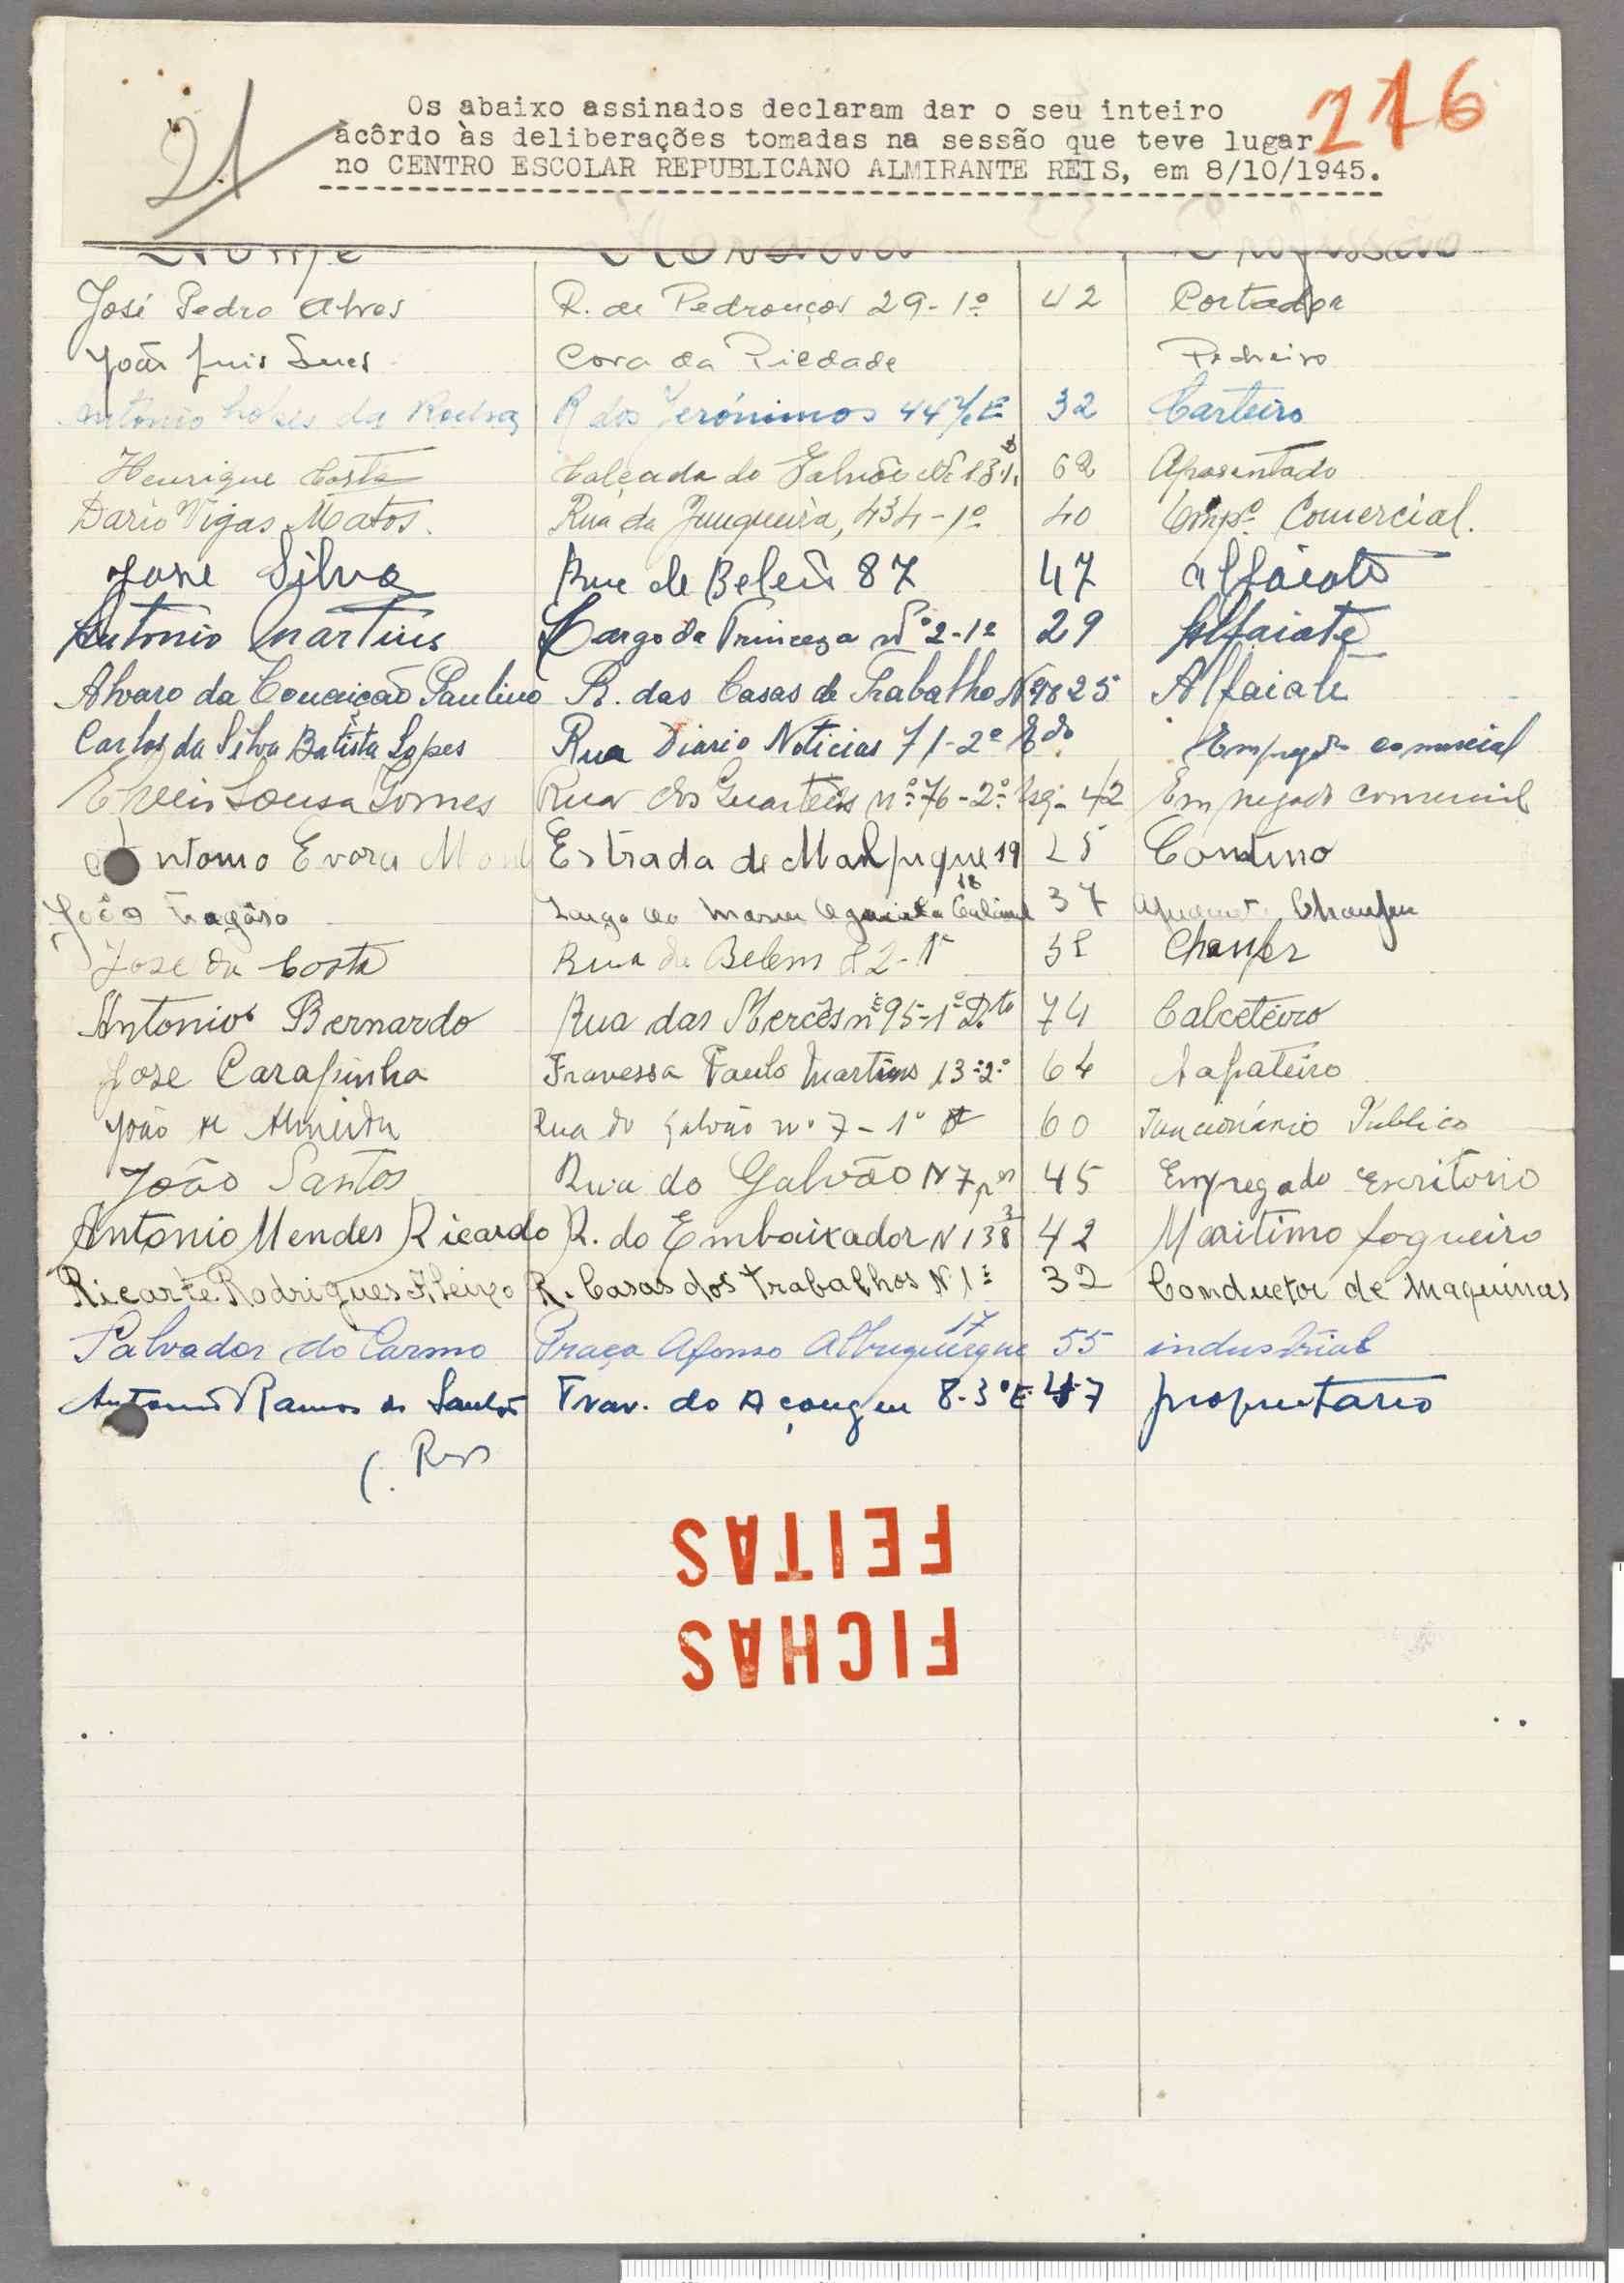 21
216
Os abaixo assinados declaram dar o seu inteiro
acôrdo às deliberações tomadas na sessão que teve lugar
no CENTRO ESCOLAR REPUBLICANO ALMIRANTE REIS, em 8/10/1945.
Nome Morada Profissão
José Pedro Alves R. de Pedrouços 29-1º 42 Cortador
João Luis Cova da Piedade Pedreiro
António da R dos Jerónimos 44 32 Carteiro
Henrique Costa Calçada do Galvão 62 Aposentado
Dario Vigas Matos. Rua da Junqueira, 434-1º 40 Empº Comercial.
Jose Silva Rua de Belem 87 47 alfaiate
Antonio Martins Largo da Princeza Nº 2-1º 29 Alfaiate
Alvaro da Conceição Paulino R. das Casas de Trabalho 25 Alfaiate
Carlos da Silva Batista Lopes Rua Diario Noticias 71-2º Edo Empregdo comercial
Sousa Gomes Rua dos Quarteis nº 76-2º Esq. 42 Empregado comercial
Antonio Evora Estrada de Malpique 19 25 Contino
João Largo 18 37 Chaufeu
Jose da Costa Rua de Belem 82-1º Chaufer
Antonio Bernardo Rua das Mercês nº 95-1º D.to 74 Calceteiro
Jose Carapinha Travessa Paulo Martins 13-2º 64 Sapateiro
João Almeida Rua do Galvão nº 7-1º 60 Funcionário Público
João Santos Rua do Galvão N 7 45 Empregado Escritorio
Antonio Mendes Ricardo R. do Embaixador N 138 3 42 Maritimo fogueiro
Ricarte Rodrigues Aleixo R. Casas dos Trabalhos N 1 32 Conductor de Maquinas
Salvador do Carmo Praça Afonso Albuquerque 17 55 industrial
Antonio Ramos dos Santos Trav. do Açougue 8-3º E. 47 proprietario
FICHAS
FEITAS